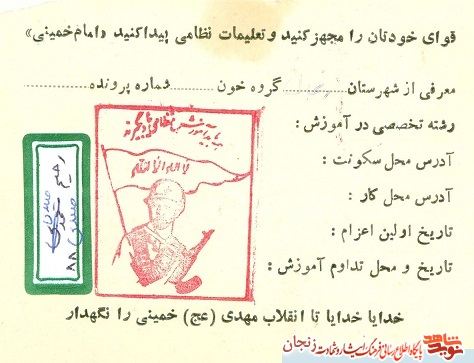 قوای خودتان را مجهز کنید و تعلیمات نظامی پیدا کنید «امام خمینی»
معرفی از شهرستان ............ گروه خون ............ شماره پرونده ............
رشته تخصصی در آموزش :
آدرس محل سکونت :
آدرس محل کار :
تاریخ اولین اعزام :
تاریخ و محل تداوم آموزش :
لا اله الا الله
رحیم
۸۸
خدایا خدایا تا انقلاب مهدی (عج) خمینی را نگهدار
نوید شاهد
پایگاه اطلاع رسانی فرهنگ ایثار و شهادت زنجان